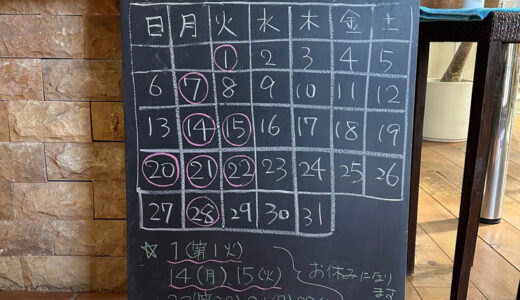 日 月 火 水 木 金 土
1 2 3 4 5
6 7 8 9 10 11 12
13 14 15 16 17 18 19
20 21 22 23 24 25 26
27 28 29 30 31
☆ 1(第1火)
14(月)、15(火)
お休みになり
ます